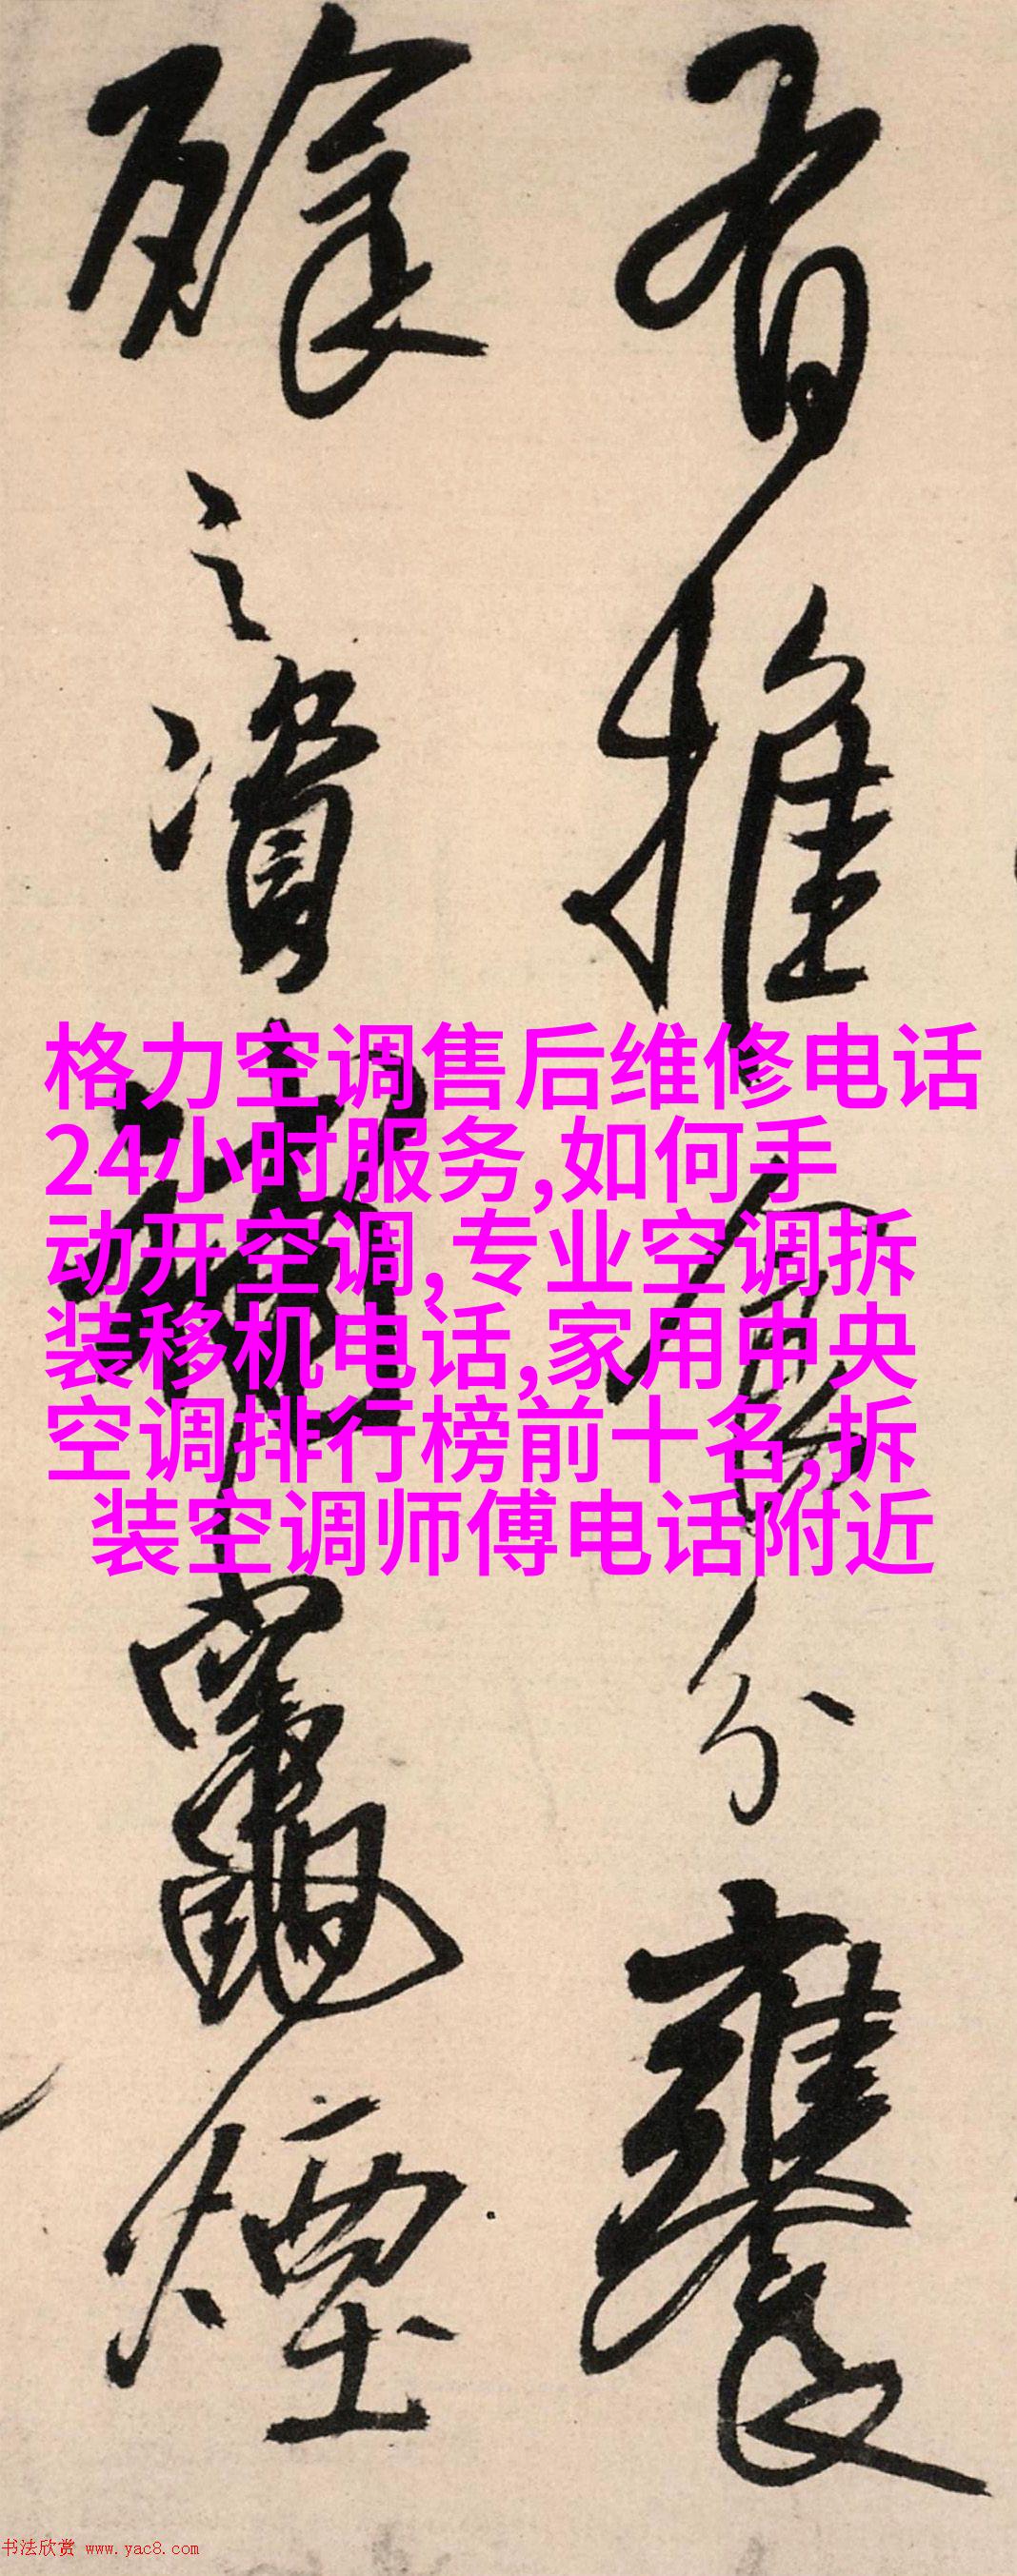 推食分饔
之資竈煙
格力空调售后维修电话
24小时服务,如何手
动开空调,专业空调拆
装移机电话,家用中央
空调排行榜前十名,拆
装空调师傅电话附近
书法欣赏 www.yac8.com